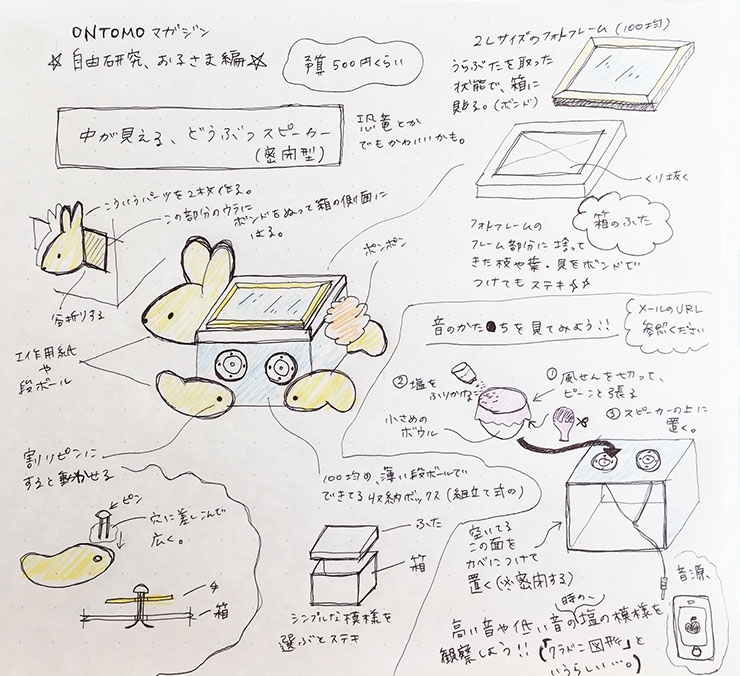 ONTOMO マガジン
☆ 自由研究、おうさま編 ☆
予算500円くらい
中が見える、どうぶつスピーカー
(密閉型)
恐竜とか
でもかわいいかも。
2Lサイズのフォトフレーム(100均)
うらぶたを取った
状態で、箱に
貼る。(ボンド)
くり抜く
箱のふた
フォトフレームの
フレーム部分に捨って
きた枝や葉・貝をボンドで
つけてもステキ☆☆
こういうパーツを2枚作る。
この部分のウラに
ボンドをぬって箱の側面に
はる。
谷折りする
ポンポン
工作用紙
や
段ボール
割りピンに
すると動かせる
ピン
穴に差しこんで
広く。
手
箱
100均の、薄い段ボールで
できてる収納ボックス(組立て式の)
ふた
箱
シンプルな模様を
選ぶとステキ
音のかたちを見てみよう!!
メールのURL
参照ください
① 風せんを切って、
ピーンと張る
② 塩を
ふりかける
小さめの
ボウル
③ スピーカーの上に
置く。
空いてる
この面を
カベにつけて
置く(※密閉する)
音源
高い音や低い音の時の、塩の模様を
観察しよう!!(「クラドニ図形」と
いうらしい…。)